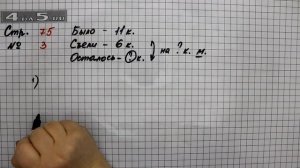 4на5.ru
Стр. 75 Было - 11 к.
№ 3 Съели - 6 к.
Осталось - ? к. на ? к. м.
1)